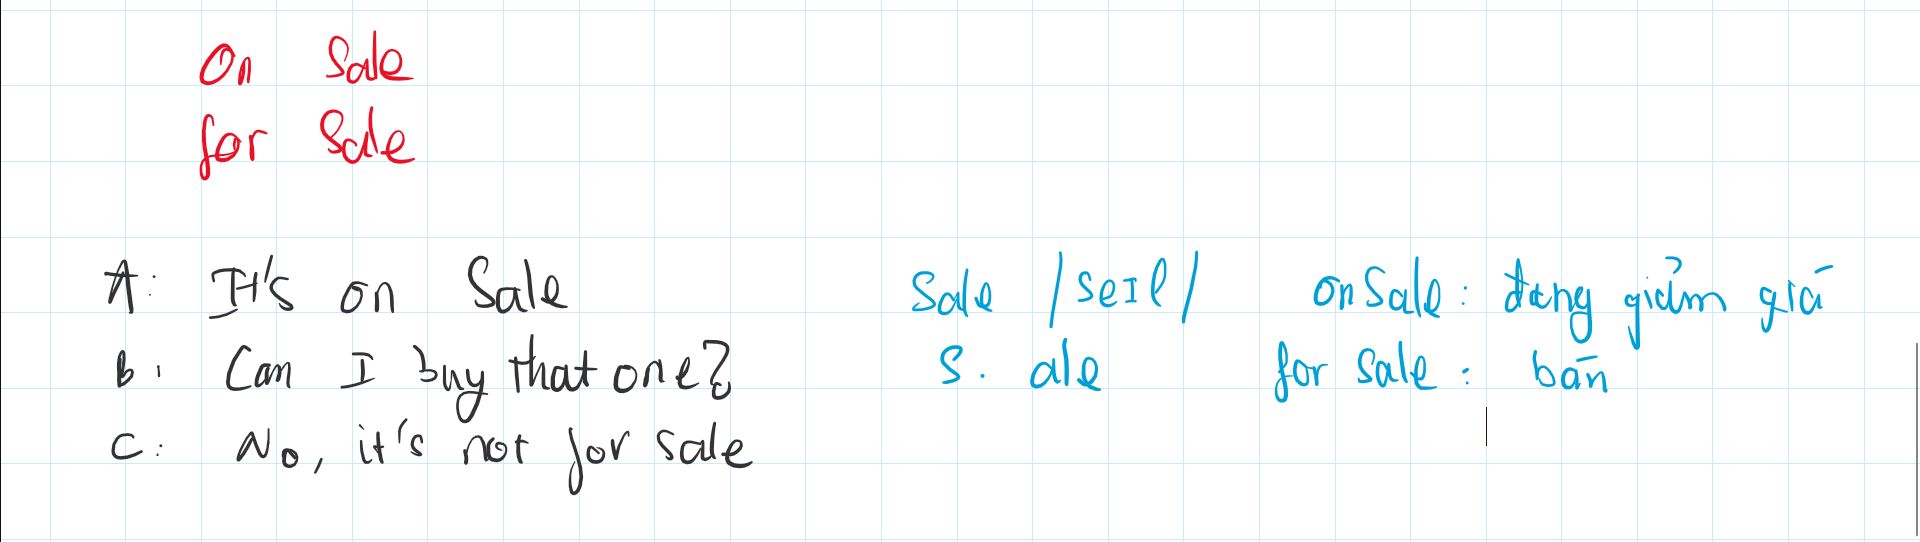 On Sale
for Sale
A: It's on Sale
B: Can I buy that one?
C: No, it's not for sale
Sale /seIl/
S. ale
on Sale: đang giảm giá
for sale: bán